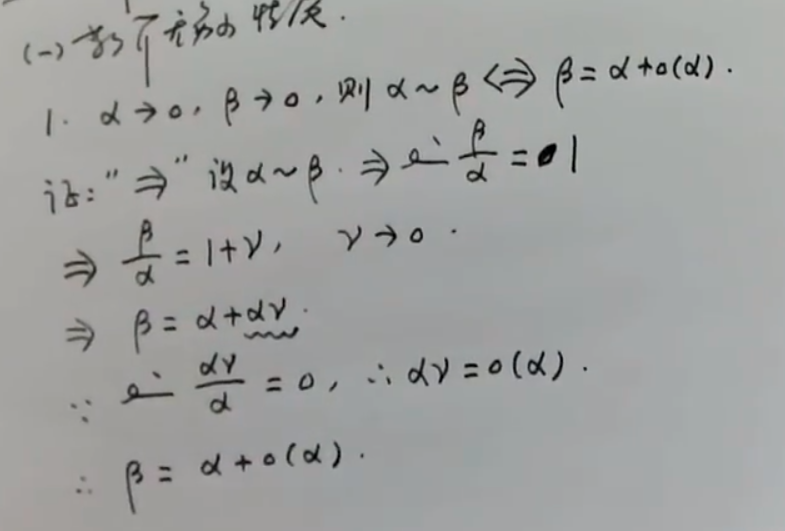 (一) 等价无穷小性质.
1. α→0, β→0, 则 α~β ⟺ β=α+o(α).
证: "⇒" 设 α~β. ⇒ lim β/α = 1
⇒ β/α = 1+γ, γ→0.
⇒ β = α+αγ.
∵ lim αγ/α = 0, ∴ αγ=o(α).
∴ β = α+o(α).